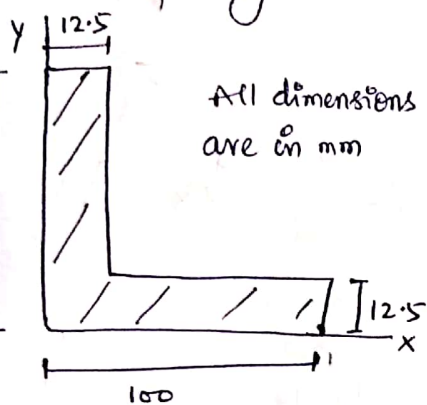 Y
12.5
All dimensions
are in mm
12.5
X
100